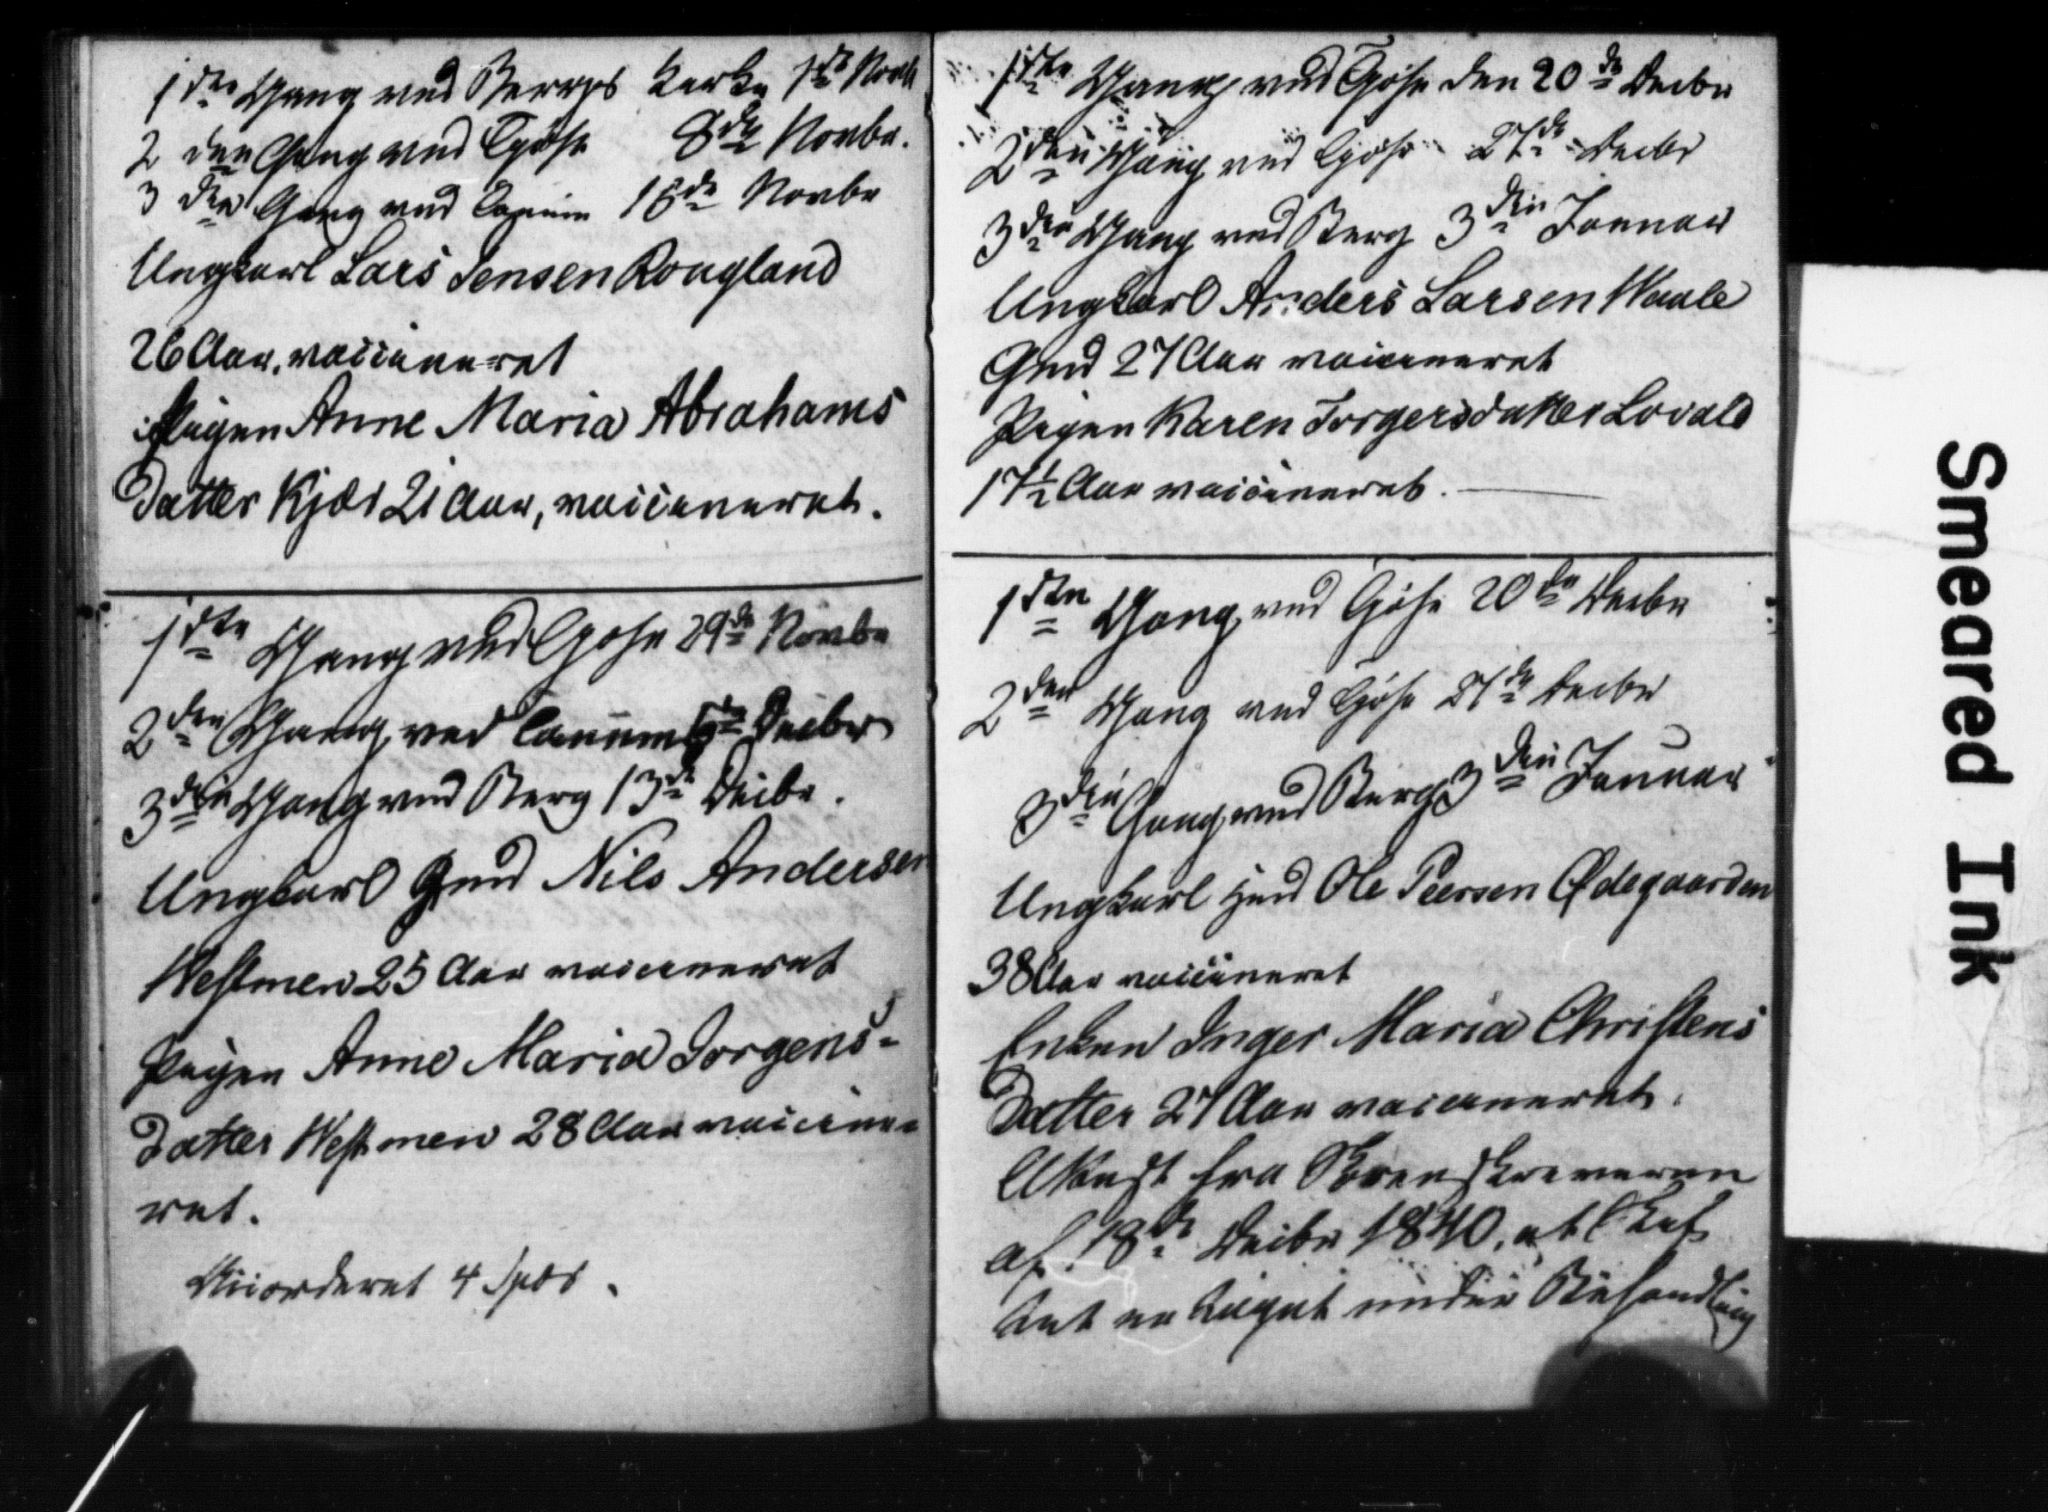 1ste Gang ved Bergs Kerke 1ste Novb
2 den Gang ved Tjøse 8de Novbr.
3 die Gang ved Tanum 15de Novbr
Ungkarl Lars Jensen Rougland
26 Aar, vaccineret
Pigen Anne Maria Abrahams
Datter Kjær 21 Aar, vaccineret.
1ste Gang ved Tjøse 29de Novbr
2den Gang ved Tanum 6te Decbr
3die Gang ved Berg 13de Decbr.
Ungkarl Gmd Nils Andersen
Westmen 25 Aar vaccineret
Pigen Anne Maria Jorgens-
Datter Westmen 28 Aar vaccine-
ret.
Accorderet 4 Spdr.
1ste Gang ved Tjøse den 20de Decbr
2den Gang ved Tjøse 27de Decbr
3die Gang ved Berg 3die Januar
Ungkarl Anders Larsen Waale
Gmd 27 Aar vaccineret
Pigen Karen Torgersdatter Lovald
17½ Aar vaccineret.
1ste Gang ved Tjøse 20de Decbr
2den Gang ved Tjøse 27de Decbr
3die Gang ved Berg 3die Januar
Ungkarl Hmd Ole Peersen Ødegaarden
38 Aar vaccineret
Enken Inger Maria Christens
Datter 27 Aar vaccineret.
Attest fra Sorenskriveren
af 18de Decbr 1840, at Skif
tet er taget under Behandling
Smeared Ink